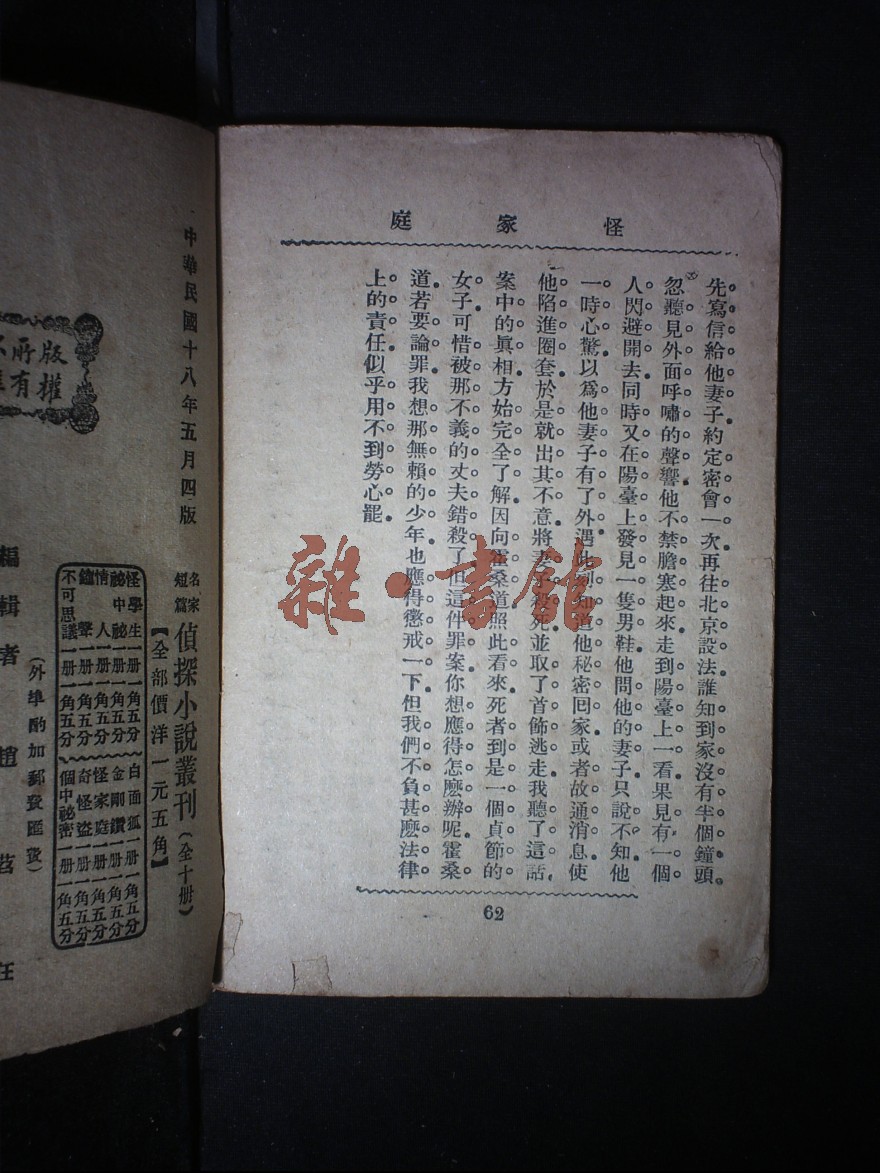 怪家庭
先寫信給他妻子約定密會一次再往北京設法誰知到家沒有半個鐘頭。
忽聽見外面呼嘯的聲響他不禁膽寒起來走到陽臺上一看果見有一個
人閃避開去同時又在陽臺上發見一隻男鞋他問他的妻子只說不知他
一時心驚以爲他妻子有了外遇此刻知道他秘密回家或者故通消息使
他陷進圈套於是就出其不意將妻子殺死並取了首飾逃走我聽了這話
案中的眞相方始完全了解因向霍桑道照此看來死者到是一個貞節的
女子可惜被那不義的丈夫錯殺了但這件罪案你想應得怎麽辦呢霍桑
道若要論罪我想那無賴的少年也應得懲戒一下但我們不負甚麽法律
上的責任似乎用不到勞心罷
62
雜·書館
中華民國十八年五月四版
版權
所有
名家短篇偵探小說叢刊(全十册)
【全部價洋一元五角】
怪學生一册一角五分 白面狐一册一角五分
祕中祕一册一角五分 金剛鑽一册一角五分
情人一册一角五分 怪家庭一册一角五分
鐘聲一册一角五分 奇怪盜一册一角五分
不可思議一册一角五分 個中祕密一册一角五分
(外埠酌加郵費匯費)
編輯者 趙苕狂